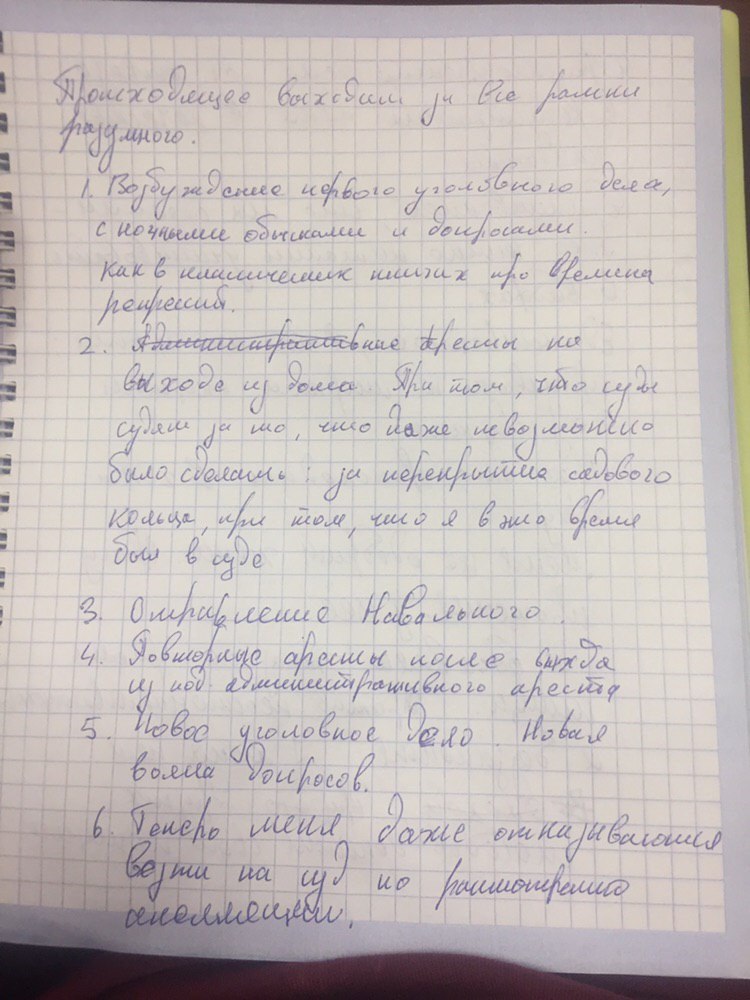 Происходящее выходит за все рамки
разумного.
1. Возбуждение первого уголовного дела,
с ночными обысками и допросами.
Как в классических книгах про времена
репрессий.
2. Административные Аресты на
выходе из дома. При том, что суды
судят за то, что даже невозможно
было сделать: за перекрытие садового
кольца, при том, что я в это время
был в суде
3. Отравление Навального.
4. Повторные аресты после выхода
из под административного ареста
5. Новое уголовное дело. Новая
волна допросов.
6. Теперь меня даже отказываются
везти на суд по рассмотрению
апелляции.